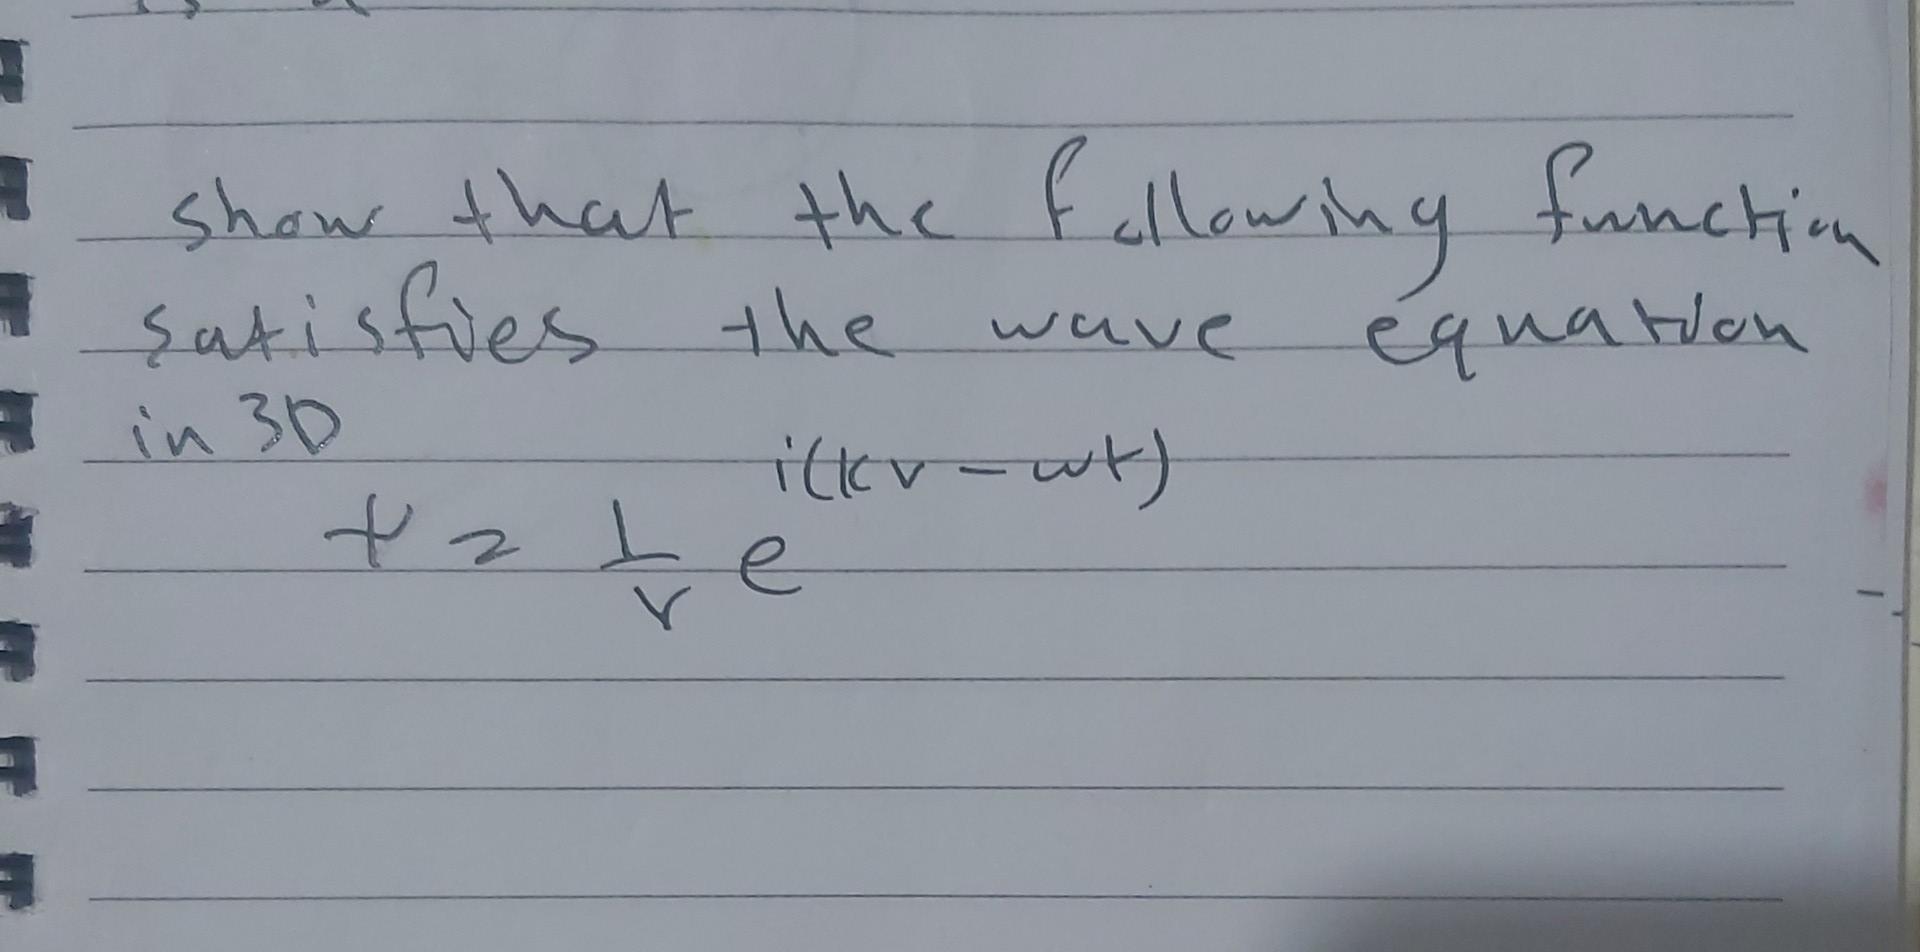 show that the following function
satisfies the wave equation
in 3D
i(kr - wt)
ψ = 1/r e